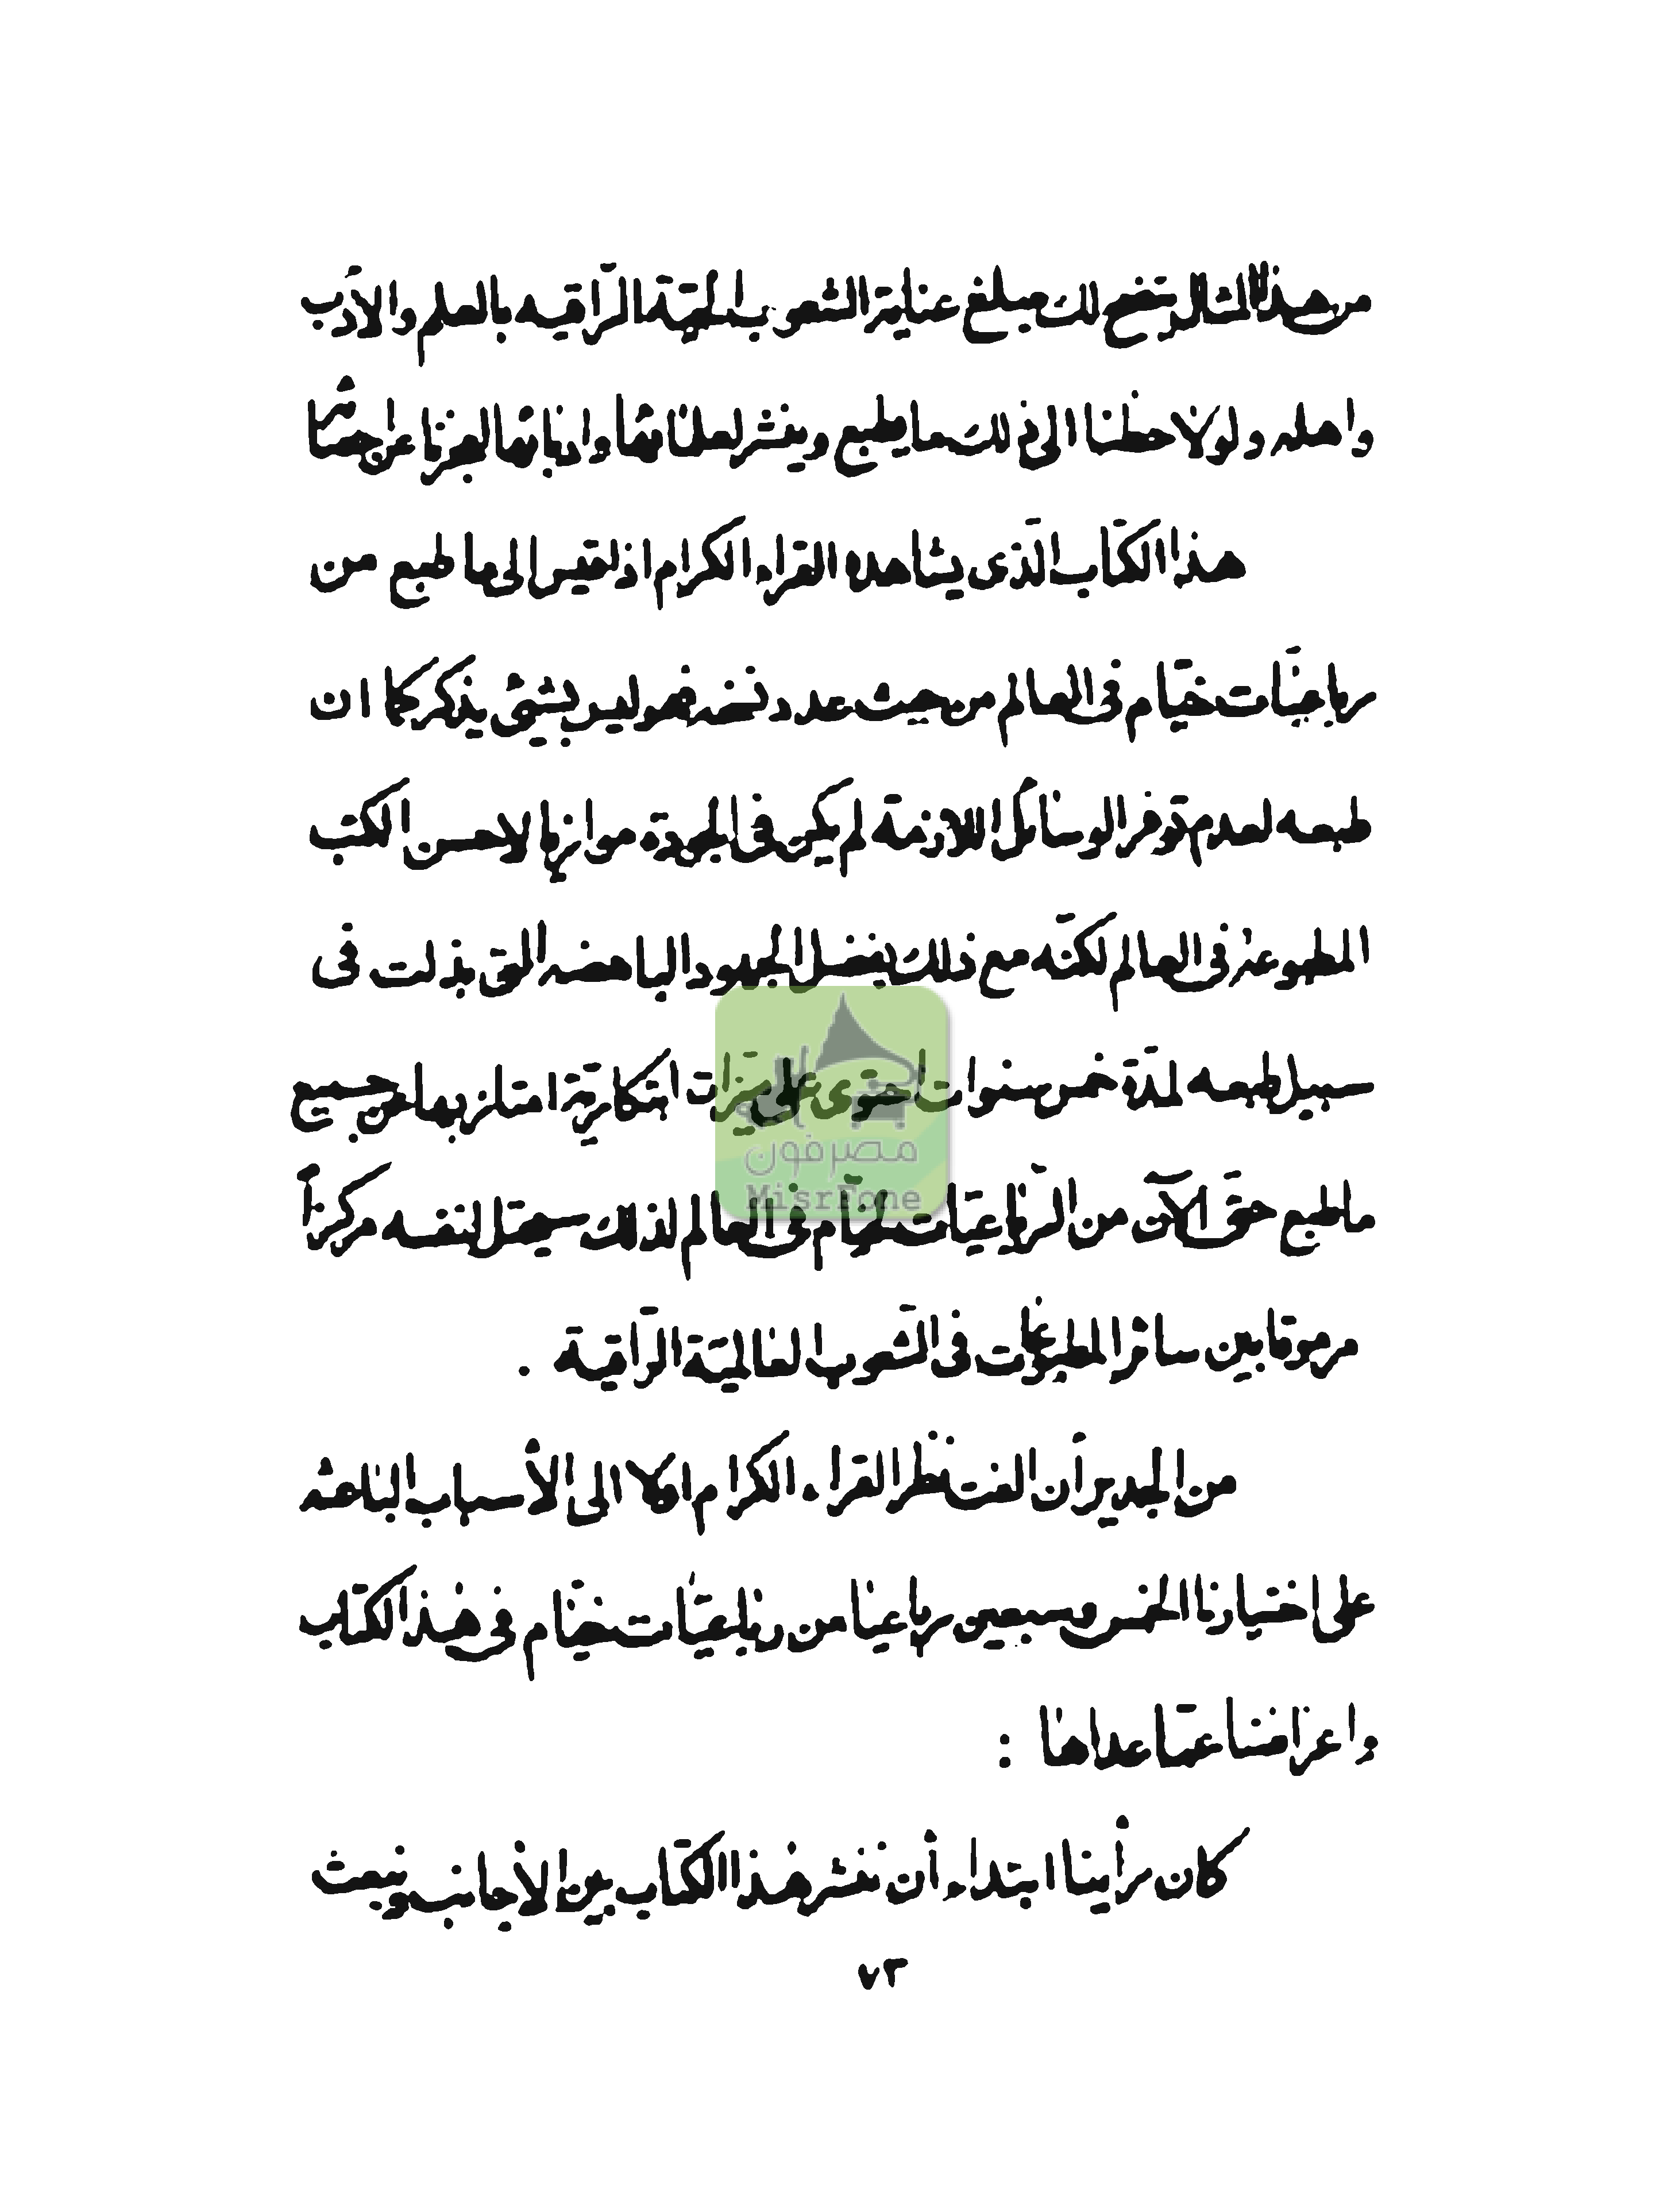 من هذا المثال يتضح لك مبلغ عناية الشعوب الحيّة الرّاقيه بالعلم والأدب
واهله ولولاحظنا الى ذلك ما يطبع وينشر لعلمائها وادبائها لعجزنا عن إحصائها
هذا الكتاب الّذى يشاهده القراء الكرام اذا قيس الى ما طبع من
رباعيّات خيّام فى العالم من حيث عدد نسخه فهو ليس بشيئ يذكر كما ان
طبعه لعدم توفر الوسائل اللازمة لم يكن فى الجودة موازيا لاحسن الكتب
المطبوعة فى العالم لكنّه مع ذلك بفضل الجهود الباهضه التى بذلت فى
سبيل طبعه لمدّة خمس سنوات احتوى على ميّزات ابتكاريّة امتاز بها عن جميع
ما طبع حتّى الآن من الرّباعيّات لخيّام فى العالم لذلك سيحتل لنفسه مركزاً
مرموقا بين سائر المطبوعات فى الشعوب العالميّة الرّاقية .
من الجدير أن الفت نظر القراء الكرام اولا الى الأسباب الباعثه
على اختيارنا الخمس وسبعين رباعيا من رباعيّات خيّام فى هذا الكتاب
واعراضنا عمّا عداها :
كان رأينا ابتداء أن ننشر هذا الكتاب بين الأجانب ونبعث
٧٣
مصرفون
MisrFone